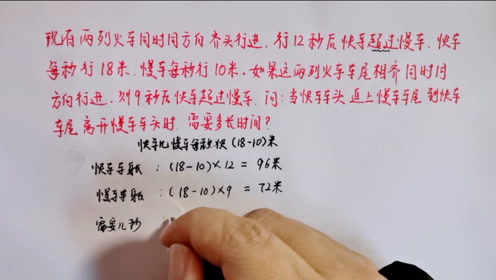 现有两列火车同时同方向齐头行进.行12秒后快车超过慢车.快车
每秒行18米.慢车每秒行10米.如果这两列火车车尾相齐同时同
方向行进.则9秒后快车超过慢车.问:当快车车头追上慢车车尾到快车
车尾离开慢车车头时.需要多长时间?
快车比慢车每秒快(18-10)米
快车车长:(18-10)×12=96米
慢车车长:(18-10)×9=72米
需要几秒